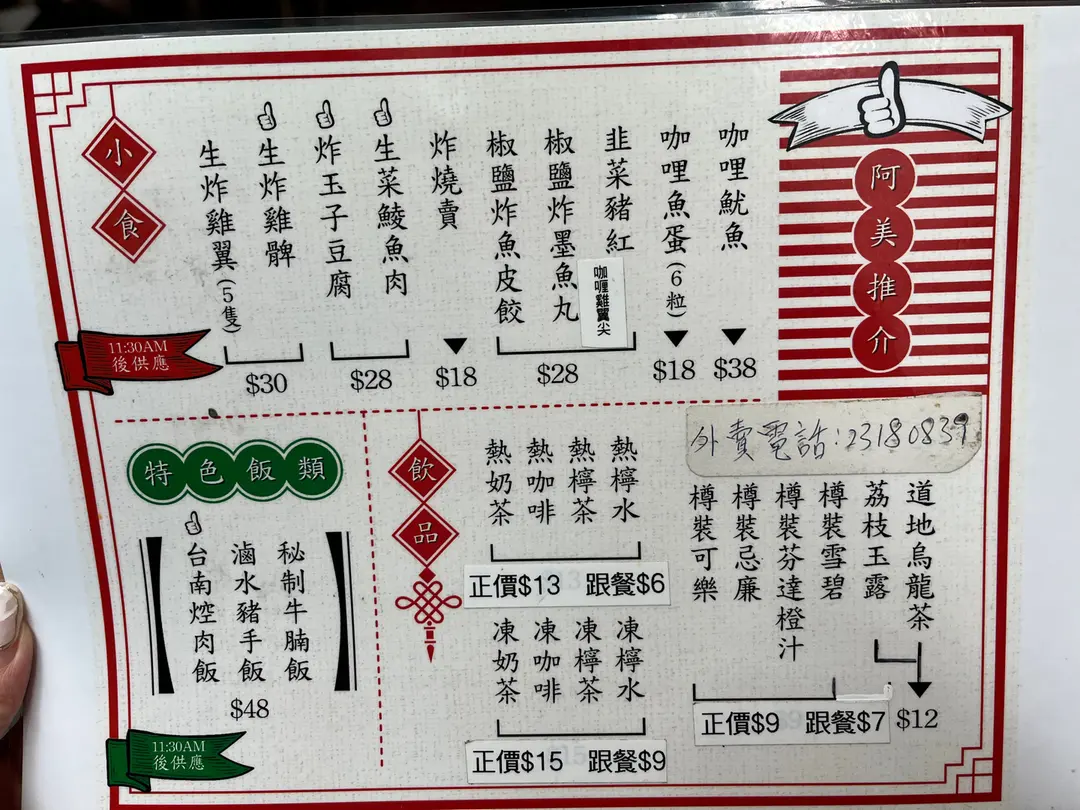 阿美推介
小食
咖哩魷魚
$38
咖哩魚蛋(6粒)
$18
韭菜豬紅
咖喱雞翼尖
椒鹽炸墨魚丸
椒鹽炸魚皮餃
$28
炸燒賣
$18
生菜鯪魚肉
炸玉子豆腐
$28
生炸雞髀
生炸雞翼(5隻)
$30
11:30AM
後供應
外賣電話:23180839
飲品
道地烏龍茶
荔枝玉露
$12
樽裝雪碧
樽裝芬達橙汁
樽裝忌廉
樽裝可樂
正價$9 跟餐$7
熱檸水
熱檸茶
熱咖啡
熱奶茶
正價$13 跟餐$6
凍檸水
凍檸茶
凍咖啡
凍奶茶
正價$15 跟餐$9
特色飯類
秘制牛腩飯
滷水豬手飯
台南焢肉飯
$48
11:30AM
後供應